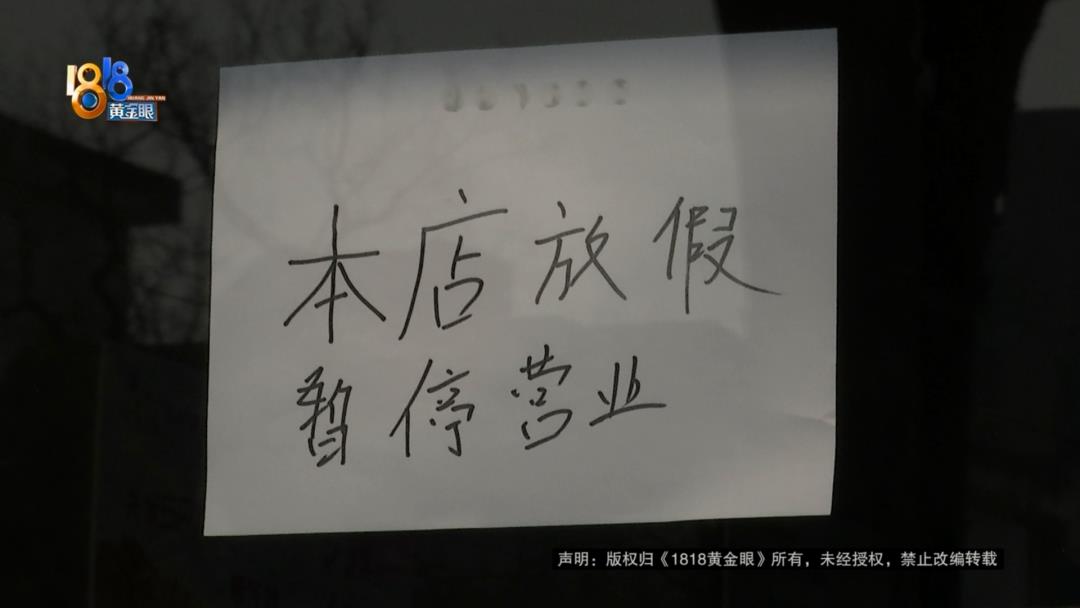 1818
黄金眼
HUANG JIN YAN
本店放假
暂停营业
声明：版权归《1818黄金眼》所有，未经授权，禁止改编转载